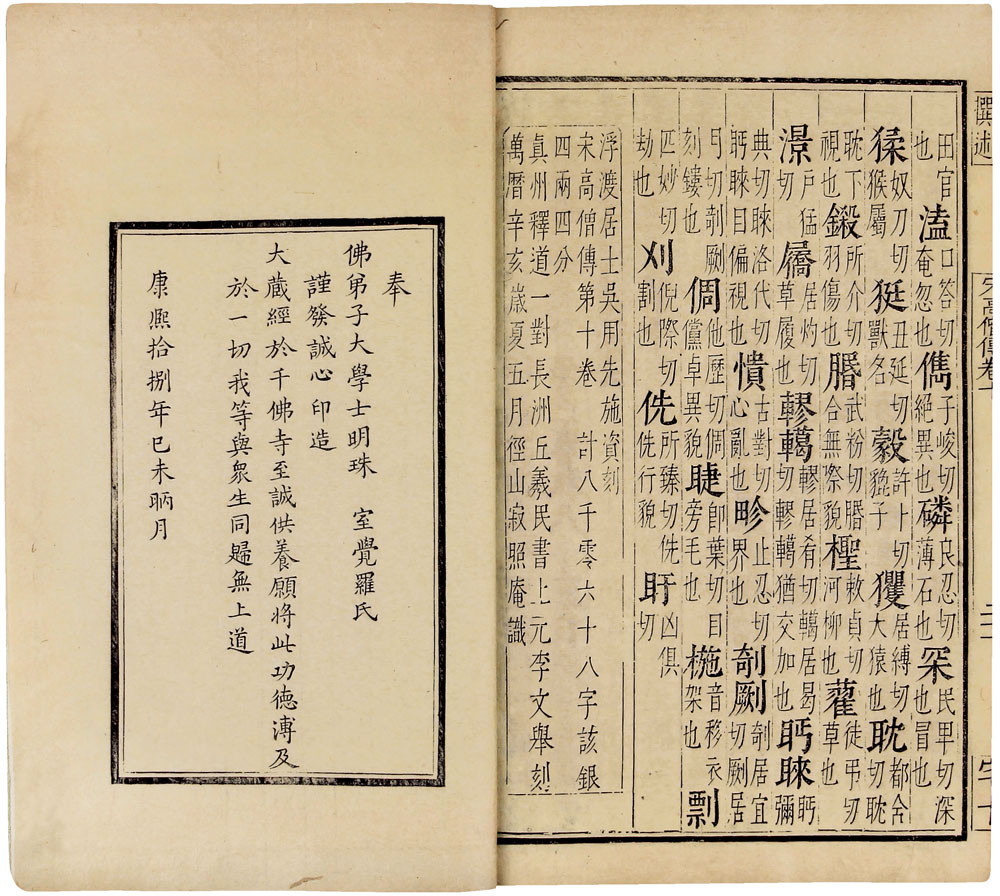 撰述
宋高僧傳卷十
田官也溘口荅切奄忽也儁子峻切絕異也磷良忍切薄石也罙民卑切深也冒也
猱奴刀切猴屬狿丑延切獸名豰許卜切貔子玃居縛切大猿也耽都含切耽
耽下視也鎩所介切羽傷也脗武粉切脗合無際貌檉敕貞切河柳也藋徒弔切草也
澋戶猛切屩居灼切草履也轇轕轇居肴切轕居曷切轇轕猶交加也眄睞眄彌
典切睞洛代切眄睞目偏視也憒古對切心亂也畛止忍切界也剞劂剞居宜切劂居
月切剞劂刻鏤也倜他歷切倜儻卓異貌睫即葉切目旁毛也椸音移衣架也剽
匹妙切劫也刈倪際切割也侁所臻切侁侁行貌盱凶俱切
浮渡居士吳用先施資刻
宋高僧傳第十卷 計八千零六十八字該銀
四兩四分
真州釋道一對長洲丘義民書上元李文舉刻
萬曆辛亥歲夏五月徑山寂照庵識
奉
佛弟子大學士明珠 室覺羅氏
謹發誠心印造
大藏經於千佛寺至誠供養願將此功德溥及
於一切我等與衆生同歸無上道
康熙拾捌年己未昞月